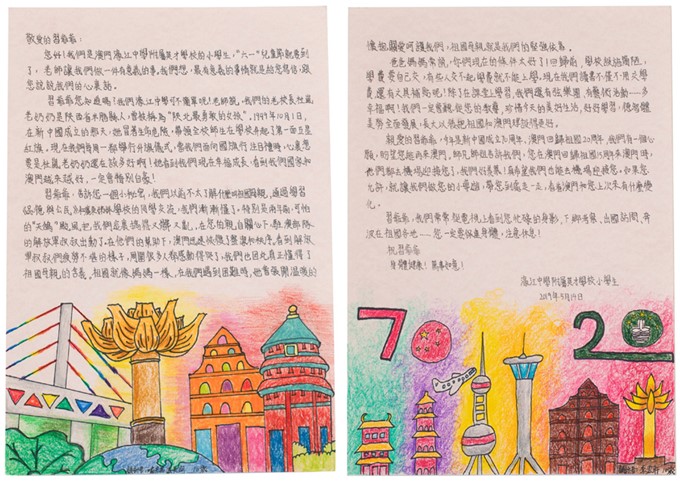 敬愛的習爺爺：
您好！我們是澳門濠江中學附屬英才學校的小學生，“六一”兒童節就要到
了，老師讓我們做一件有意義的事。我們想，最有意義的事情就是給您寫信，跟
您說說我們的心裏話。
習爺爺您知道嗎？我們濠江中學可不簡單呢！老師說，我們的老校長杜嵐
老奶奶是陝西省米脂縣人，曾被稱為“陝北最勇敢的女孩”，1949年10月1日，
在新中國成立的那天，她冒着生命危險，帶領全校師生在學校升起了第一面五星
紅旗。現在我們每周一都舉行升旗儀式，當我們面向國旗行注目禮時，心裏想
要是杜嵐老奶奶還在該多好啊！她看到我們現在幸福成長，看到我們國家和
澳門越來越好，一定會特別自豪！
習爺爺，告訴您一個小秘密，我們以前不太了解什麼叫祖國母親，通過學習
學校的同學交流，我們漸漸懂了。特別是前年，可怕
的“天鴿”颱風把我們家弄得又髒又亂，在您的親自關心下，駐澳部隊
的解放軍叔叔出動了。在他們的幫助下，澳門迅速恢復了整潔和秩序。看到解放
軍叔叔們疲勞不堪的樣子，周圍很多人都感動得哭了，我們也因此真正懂得了
祖國母親的含義，祖國就像媽媽一樣，在我們遇到困難時，她會張開溫暖的
懷抱，關愛呵護我們，祖國母親就是我們的堅強依靠。
爸爸媽媽常說，你們現在的條件太好了！回歸前，學校設施簡陋，
學費要自己交，有些人交不起學費就不能上學。現在我們讀書不僅不用交學
費，還有文具補貼呢！除了在課堂上學習，我們還有弦樂團，有藝術活動……多
幸福啊！我們一定要聽從您的教導，珍惜今天的美好生活，好好學習，德智體
美勞全面發展，長大以後把祖國和澳門建設得更好。
親愛的習爺爺，今年是新中國成立70周年，澳門回歸祖國20周年，我們有一個心
願，盼望您能再來澳門。師兄師姐告訴我們，您在澳門回歸祖國15周年來澳門時，
他們都去機場迎接您了，我們好羨慕！ 我們也能去機場迎接您。如果您
允許，就讓我們做您的小導遊，帶您到處走一走，看看澳門和您上次來有什麼變
化。
習爺爺，我們常常從電視上看到您忙碌的身影，下鄉考察、出國訪問，奔
波在祖國各地……您一定要保重身體，注意休息！
祝習爺爺
身體健康！萬事如意！
濠江中學附屬英才學校小學生
2019年5月19日
70
20